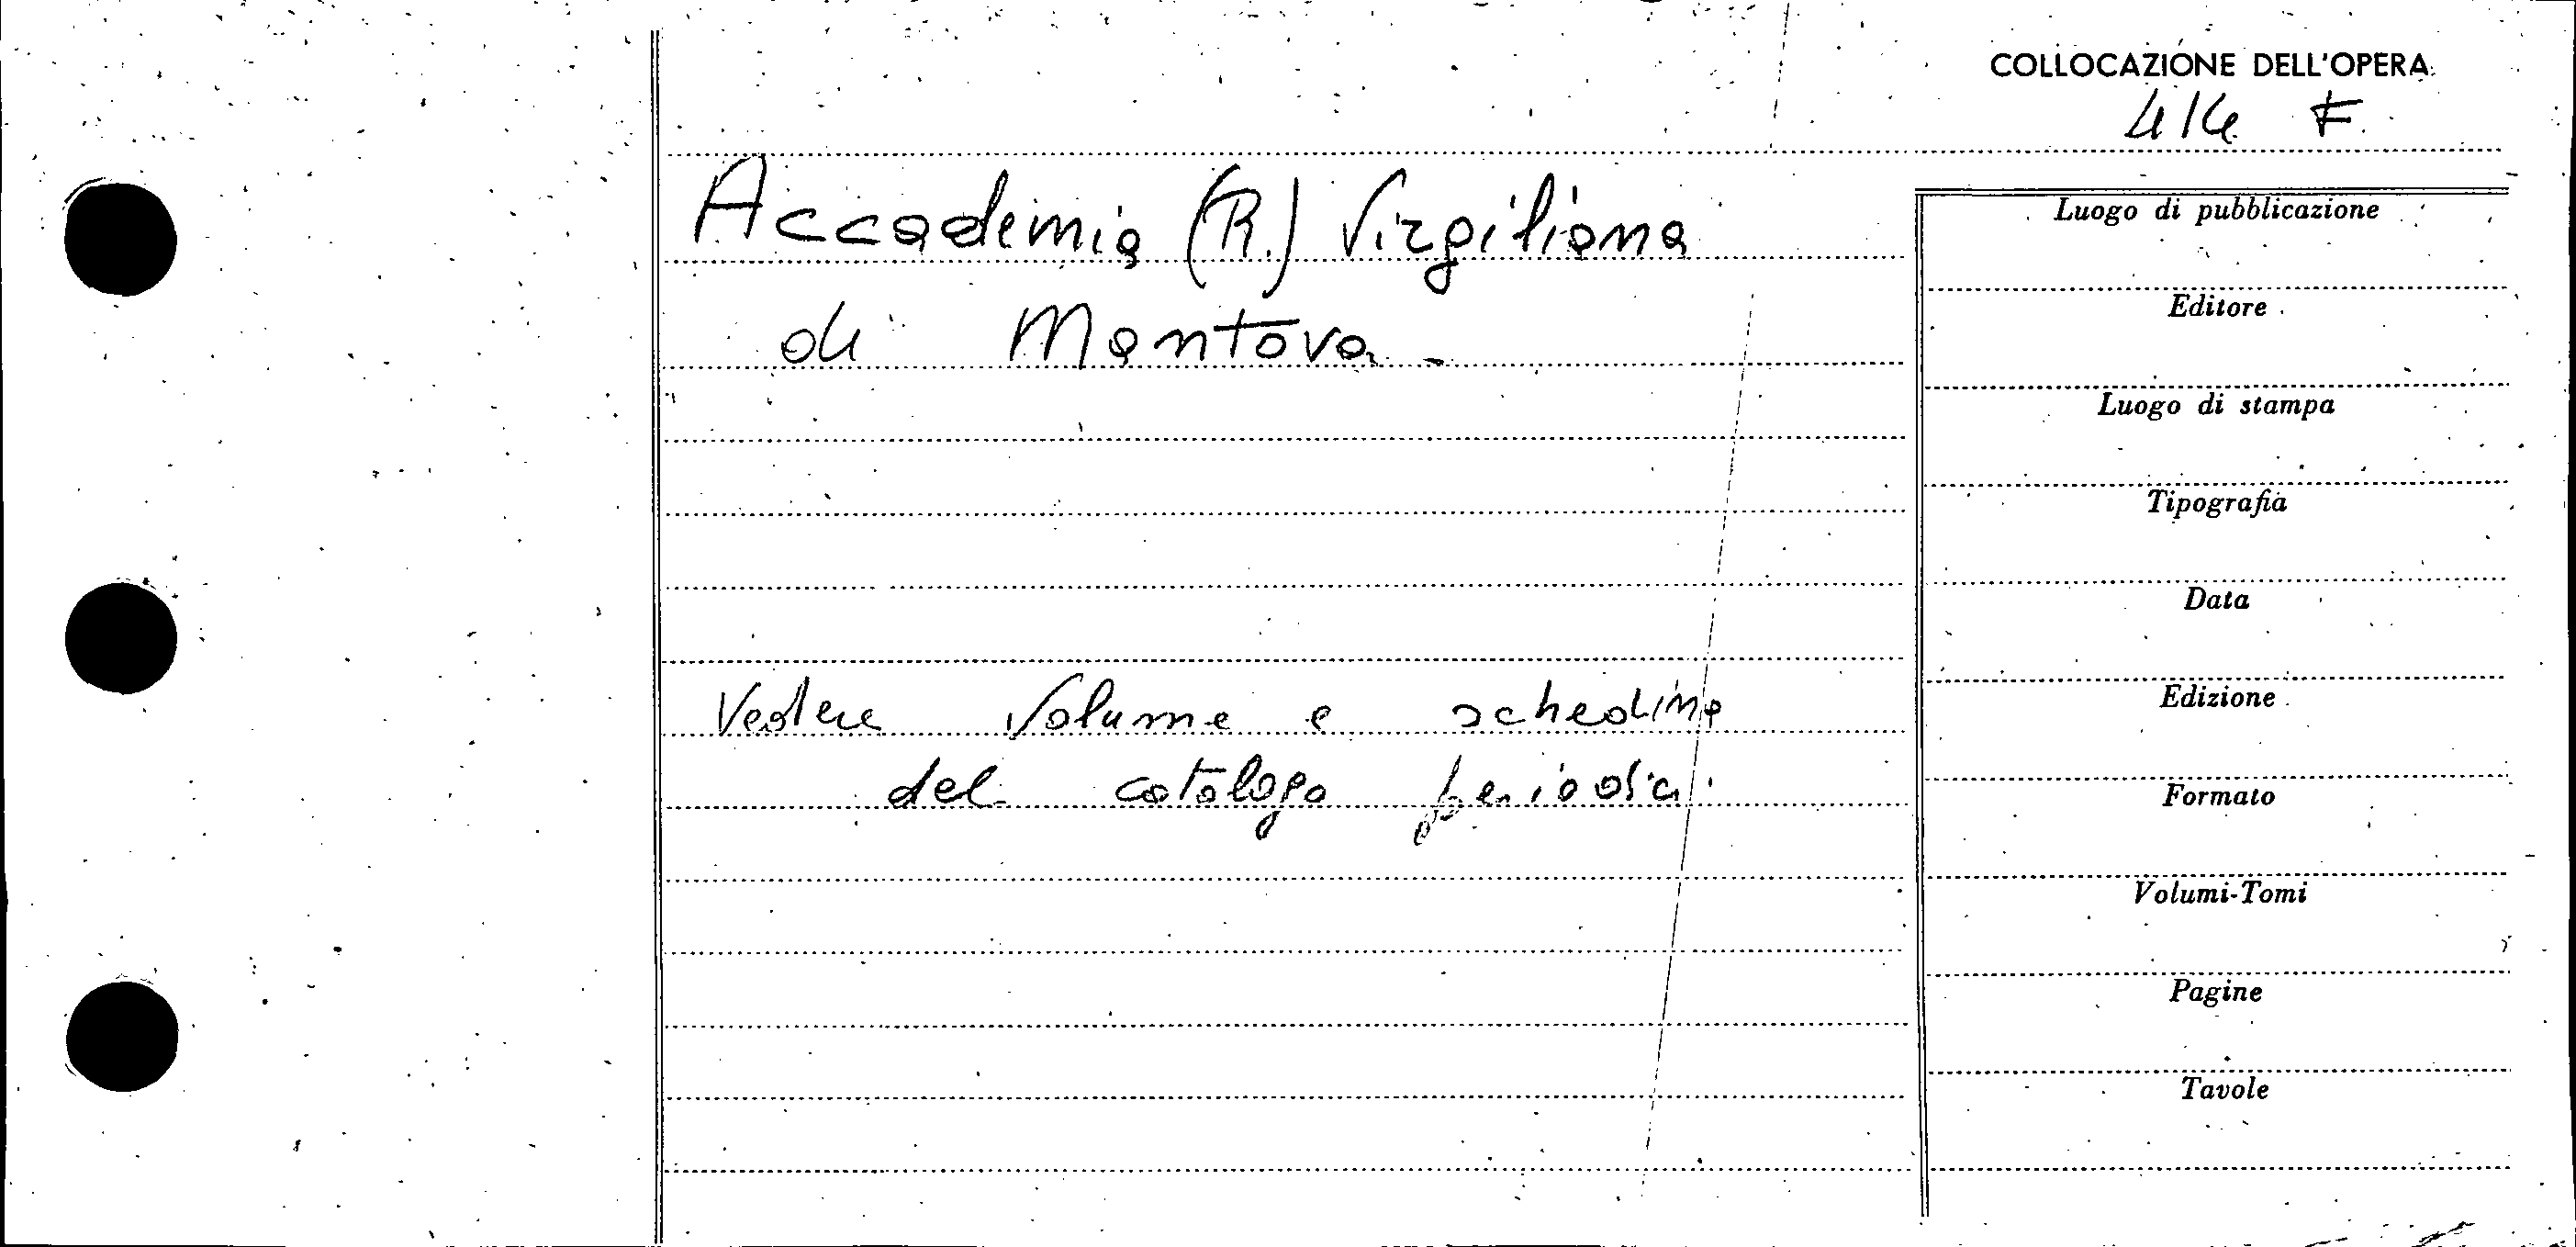 COLLOCAZIONE DELL'OPERA
414 F
Accademia (R.) Virgiliana
di Mantova -
Vedere Volume e schedina
del catalogo periodici
Luogo di pubblicazione
Editore
Luogo di stampa
Tipografia
Data
Edizione
Formato
Volumi-Tomi
Pagine
Tavole